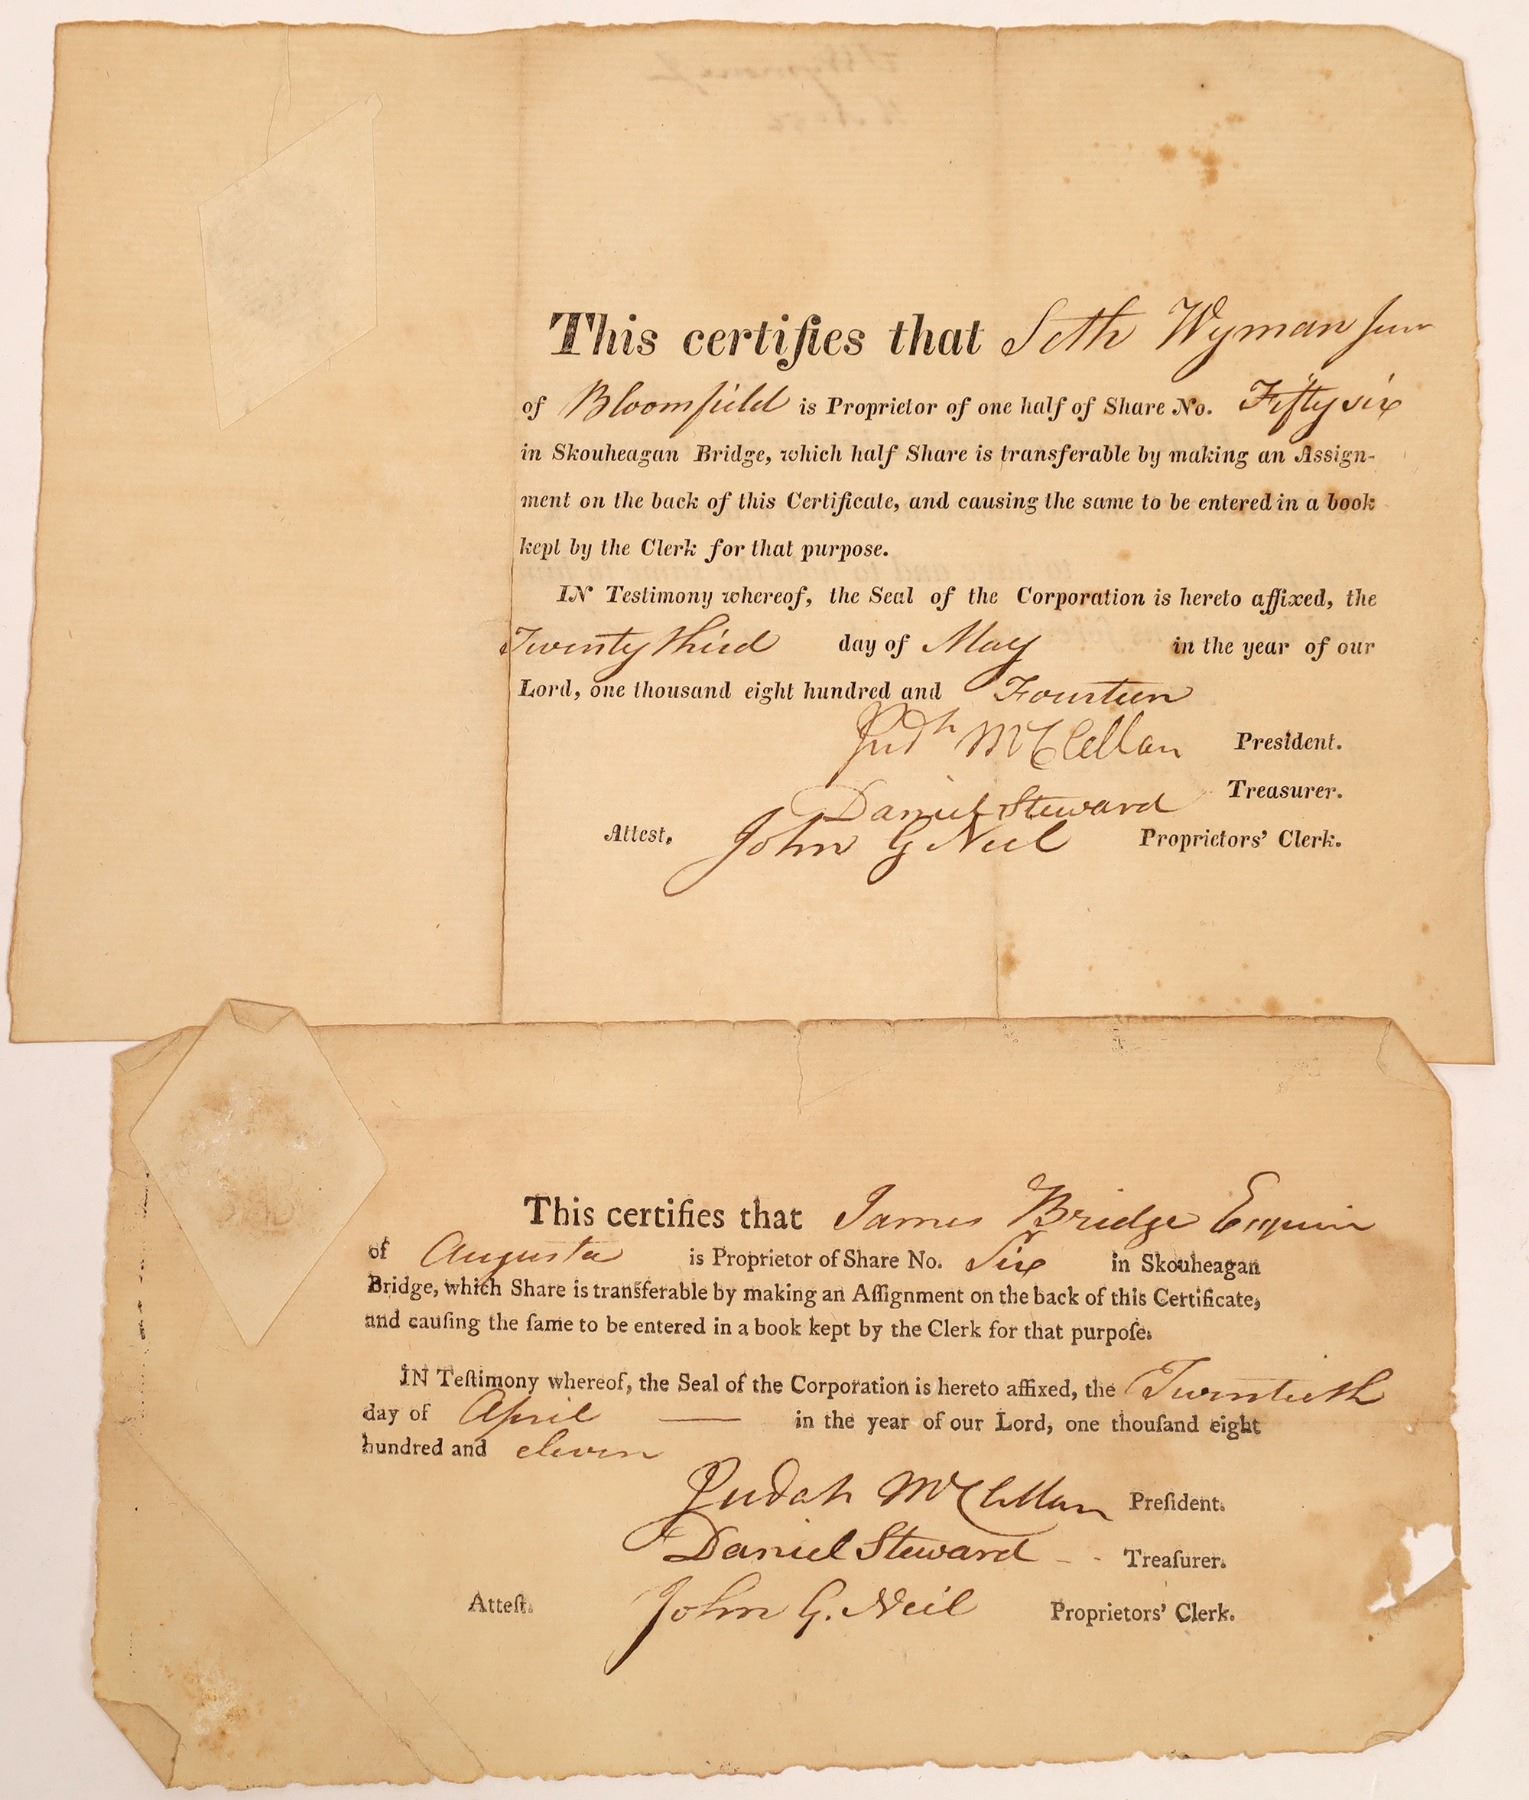 This certifies that Seth Wyman Junr
of Bloomfield is Proprietor of one half of Share No. Fifty six
in Skouheagan Bridge, which half Share is transferable by making an Assign-
ment on the back of this Certificate, and causing the same to be entered in a book
kept by the Clerk for that purpose.
IN Testimony whereof, the Seal of the Corporation is hereto affixed, the
Twenty third day of May in the year of our
Lord, one thousand eight hundred and Fourteen
Judh McClellan President.
Daniel Steward Treasurer.
Attest. John G Neil Proprietors' Clerk.
This certifies that James Bridge Esquire
of Augusta is Proprietor of Share No. Six in Skouheagan
Bridge, which Share is transferable by making an Aſſignment on the back of this Certificate,
and cauſing the ſame to be entered in a book kept by the Clerk for that purpoſe.
IN Teſtimony whereof, the Seal of the Corporation is hereto affixed, the Twentieth
day of April — in the year of our Lord, one thouſand eight
hundred and eleven
Judah McClellan Preſident.
Daniel Steward - - Treaſurer.
Atteſt. John G. Neil Proprietors' Clerk.